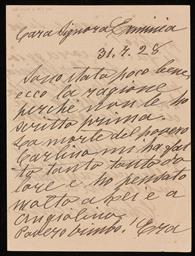 Cara Signora Erminia
31.7.28
Sono stato poco bene,
ecco la ragione
perchè non le ho
scritto prima.
La morte del povero
Carlino mi ha fat
to tanto tanto do
lore e ho pensato
molto a lei e a
Angiolino.
Povero bimbo! Era